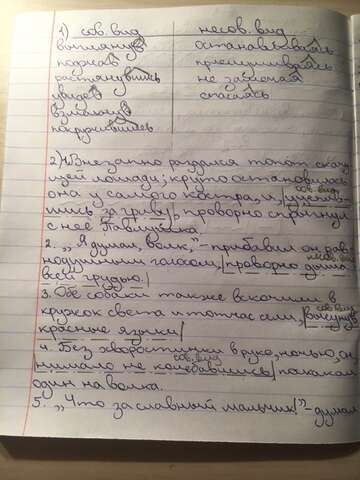 1) сов. вид несов. вид
взглянув останавливаясь
поджав прислушиваясь
растянувшись не забочась
увидев спасаясь
взмахнув
нагрузившись
2) 1. Внезапно раздался топот скачу
щей лошади; круто остановилась
сов. вид
она у самого костра, и, уцепив-
шись за гриву, проворно спрыгнул
с неё Павлуша
2. "Я думал, волк," - прибавил он рав-
несов. вид
нодушным голосом, проворно дыша
всей грудью.
3. Обе собаки также вскочили в
сов. вид
кружок света и тотчас сели, высунув
красные языки
4. Без хворостинки в руке, ночью, он
сов. вид
нимало не колебавшись поскакал
один на волка.
5. "Что за славный мальчик!" - думал